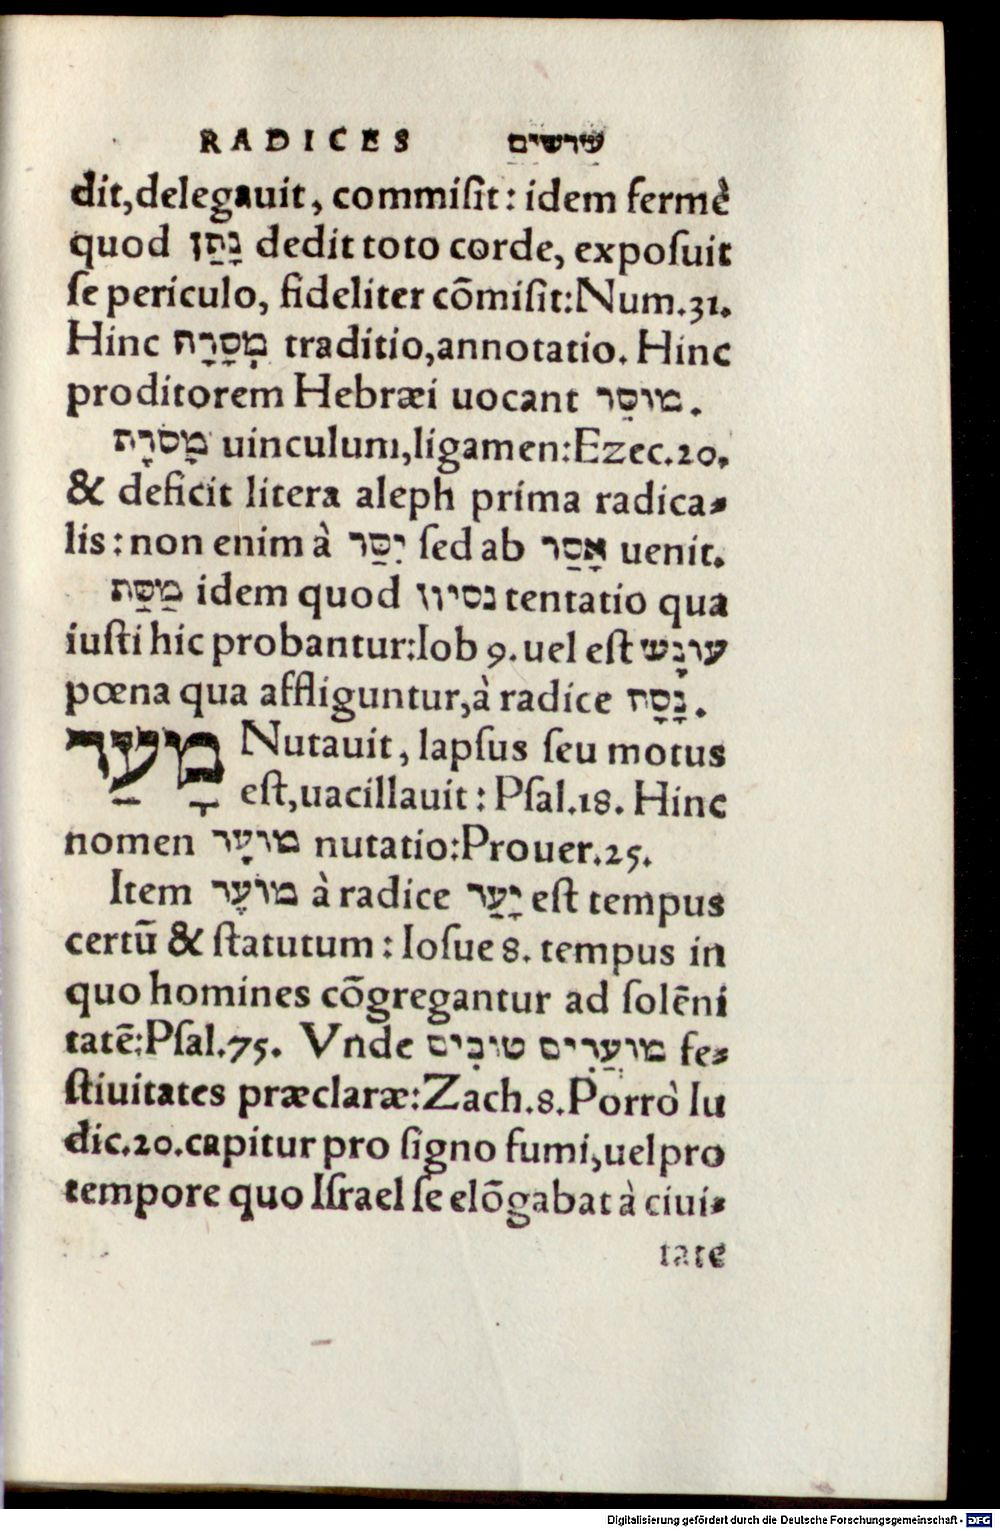 RADICES שׁרשים
dit,delegauit, commiſit: idem fermè
quod נָתַן dedit toto corde, expoſuit
ſe periculo, fideliter cõmiſit:Num.31.
Hinc מְסָרָה traditio,annotatio. Hinc
proditorem Hebræi uocant מוסֵר.
מָסֹרֶת uinculum,ligamen:Ezec.20.
& deficit litera aleph prima radica⸗
lis: non enim à יָסַר ſed ab אָסַר uenit.
מַסַּת idem quod נסיון tentatio qua
iuſti hic probantur:Iob 9.uel eſt עונֶש
pœna qua affliguntur,à radice נָסָה.
מָעַד Nutauit, lapſus ſeu motus
eſt,uacillauit: Pſal.18. Hinc
nomen מועָד nutatio:Prouer.25.
Item מועֵד à radice יָעַד eſt tempus
certũ & ſtatutum: Ioſue 8. tempus in
quo homines cõgregantur ad ſolẽni
tatẽ:Pſal.75. Vnde מועֲדִים טובִים fe⸗
ſtiuitates præclaræ:Zach.8.Porrò Iu
dic.20.capitur pro ſigno fumi,uel pro
tempore quo Iſrael ſe elõgabat à ciui⸗
tate
Digitalisierung gefördert durch die Deutsche Forschungsgemeinschaft - DFG